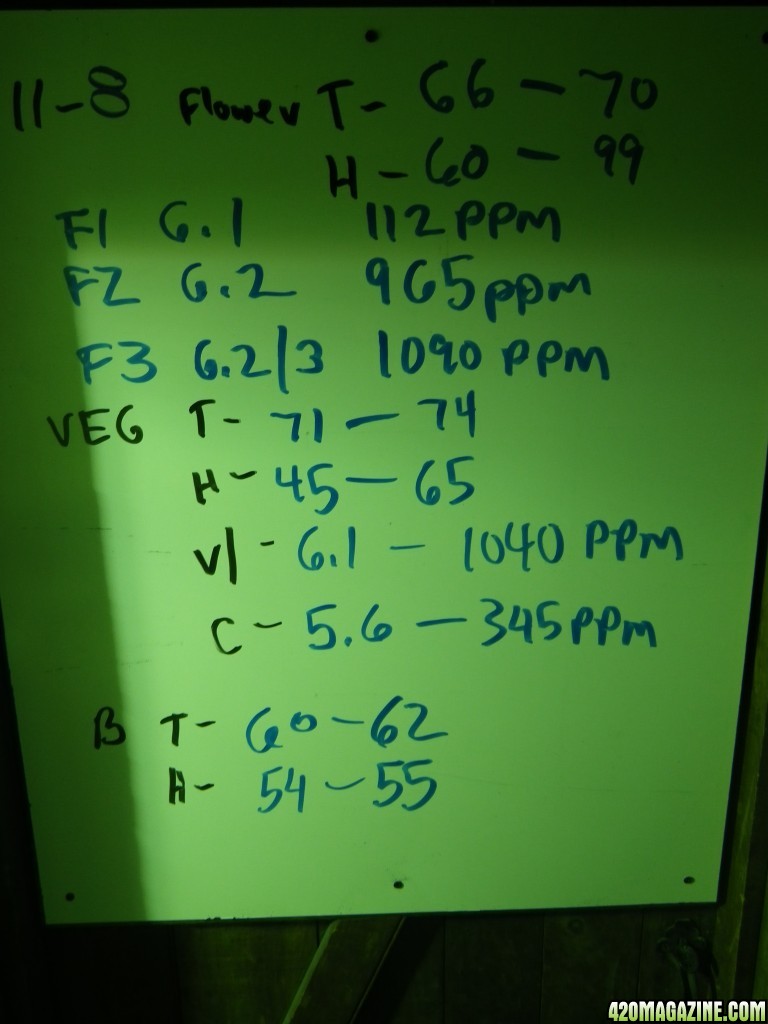 11-8 Flower T- 66 - 70
H - 60 - 99
F1 6.1 112 PPM
F2 6.2 965 ppm
F3 6.2/3 1090 PPM
VEG T- 71 - 74
H- 45 - 65
V1 - 6.1 - 1040 PPM
C - 5.6 - 345 PPM
B T- 60 - 62
H- 54 - 55
420MAGAZINE.COM